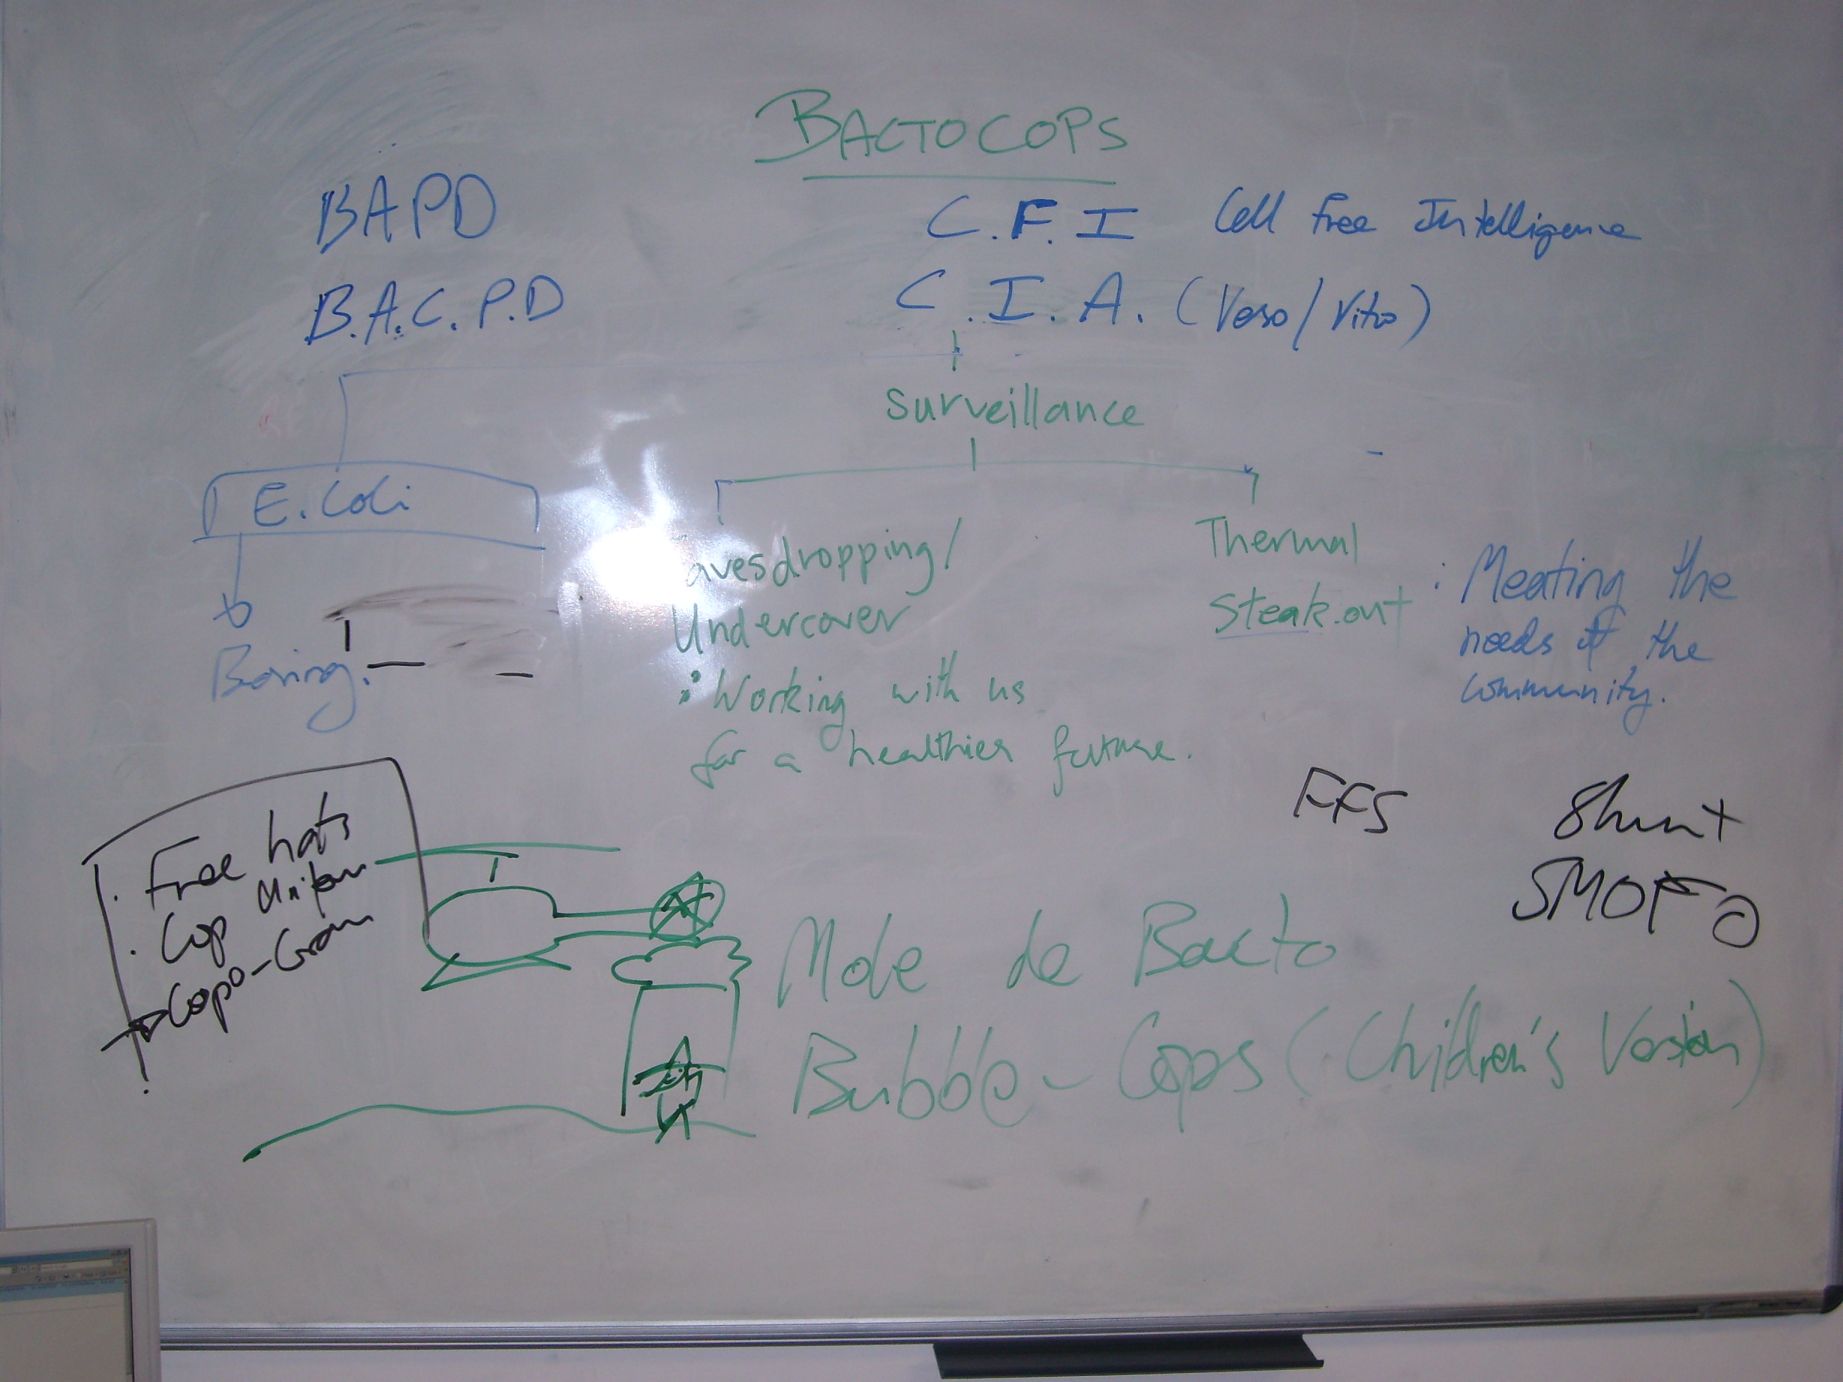 BACTOCOPS
BAPD
C.F.I Cell Free Intelligence
B.A.C.P.D
C.I.A. (Veso/Vitro)
Surveillance
E.Coli
Eavesdropping/
Undercover
Thermal
Steak.out
: Meating the
needs of the
community.
Boring.
: Working with us
for a healthier future.
FFS
Shunt
SMOFO
. Free hats
. Cop Uniform
Copo-Gram
Mole de Bacto
Bubble-Cops (Children's Version)